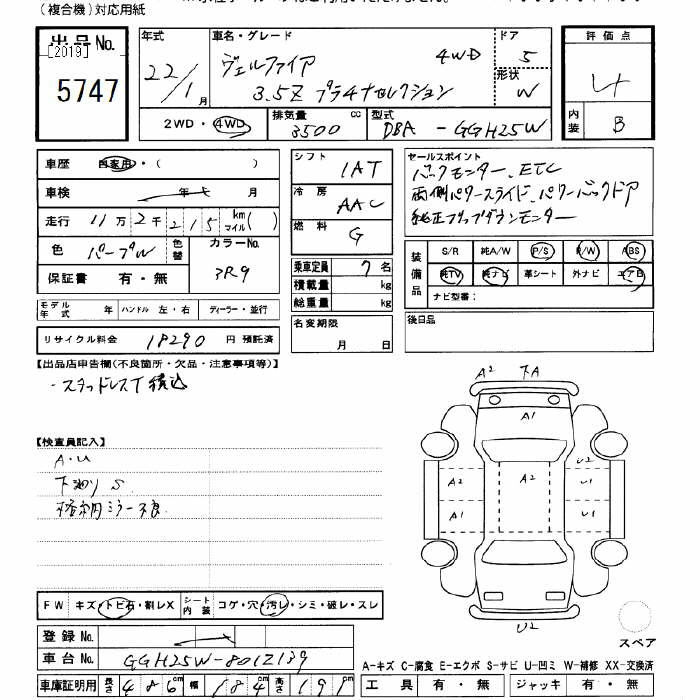 (複合機)対応用紙
出品No.
[2019]
5747
年式 22/1月
車名・グレード ヴェルファイア 4WD
3.5Z プラチナセレクション
ドア 5
形状 W
評価点 4
内装 B
2WD・4WD
排気量 3500 cc
型式 DBA-GGH25W
車歴 自家用・( )
車検 年 月
走行 11万2千215 km マイル( )
色 パープルW 色替
カラーNo. 3R9
保証書 有・無
モデル年式 年 ハンドル 左・右 ディーラー・並行
リサイクル料金 18290円 預託済
シフト 1AT
冷房 AAC
燃料 G
乗車定員 7名
積載量 kg
総重量 kg
名変期限
月 日
セールスポイント
バックモニター、ETC
両側パワースライド、パワーバックドア
純正フリップダウンモニター
装備品 S/R 純A/W P/S P/W ABS
純TV 純ナビ 革シート 外ナビ エアB
ナビ型番:
後日品
【出品店申告欄(不良箇所・欠品・注意事項等)】
・スタッドレスT積込
【検査員記入】
A・U
下廻りS
格納ミラー不良
A2 下A
A1
U2
A2 A2 U1
A1 U1
U2
スペア
FW キズ・トビ石・割レX シート内装 コゲ・穴・汚レ・シミ・破レ・スレ
登録No.
車台No. GGH25W-8012139
A-キズ C-腐食 E-エクボ S-サビ U-凹ミ W-補修 XX-交換済
車庫証明用 長さ 486cm 幅 184cm 高さ 191cm
工具 有・無 ジャッキ 有・無